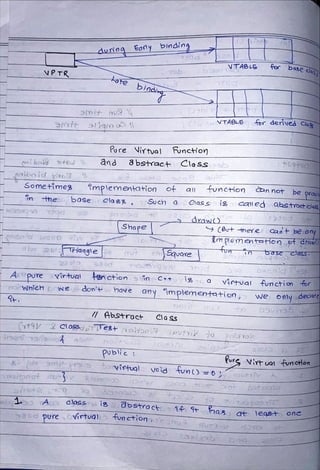 during Early binding
VPTR
VTABLE for base class
late binding
VTABLE for derived class
Pure Virtual Function
and abstract Class
Sometimes implementation of all function cannot be
in the base class. Such a class is called abstract class
Shape
draw()
(But there can't be any
implementation of draw
fun in base class.
Triangle
Square
A pure virtual function in C++ is a virtual function for
which we don't have any implementation, we only declare
it.
// Abstract Class
class Test
{
public :
virtual void fun() = 0;
Pure Virtual function
}
1. A class is abstract if it has at least one
pure virtual function.